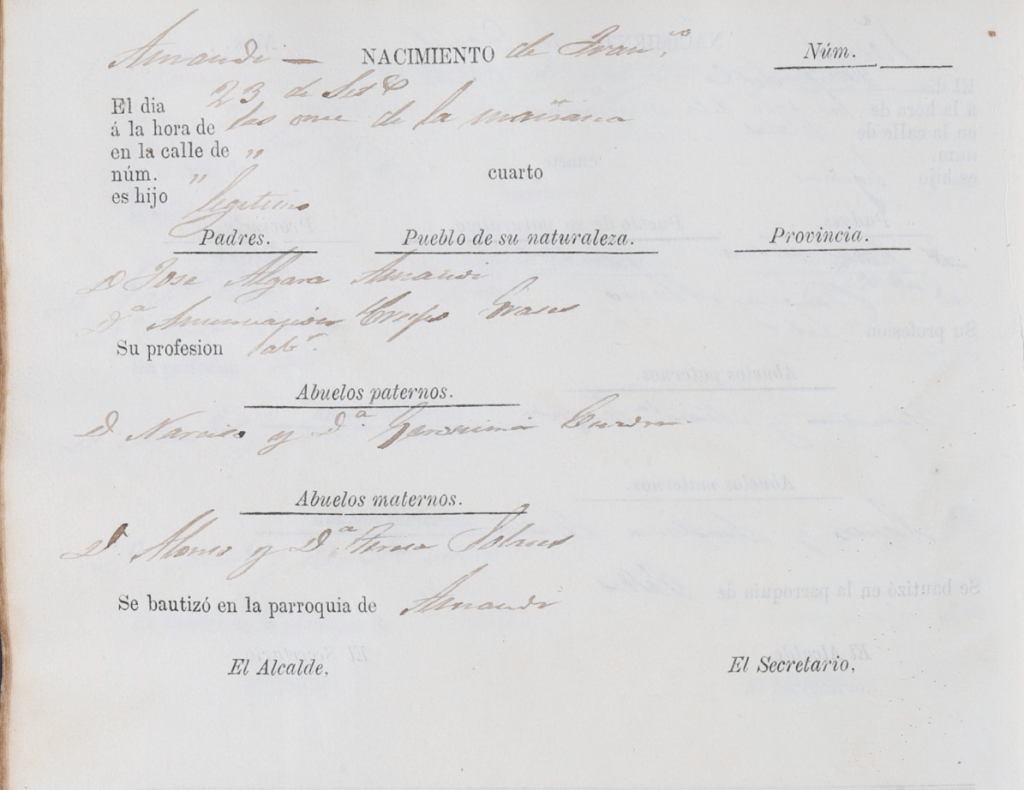 Amandi — NACIMIENTO de Fran.co Núm.
El dia 23 de Set.e
á la hora de las once de la mañana
en la calle de "
núm. " cuarto
es hijo legitimo
Padres. Pueblo de su naturaleza. Provincia.
D Jose Algara Amandi
D.a Anunciacion Crespo
Su profesion lab.r
Abuelos paternos.
D. Narciso y D.a
Abuelos maternos.
D. Alonso y D.a Teresa
Se bautizó en la parroquia de Amandi
El Alcalde, El Secretario,